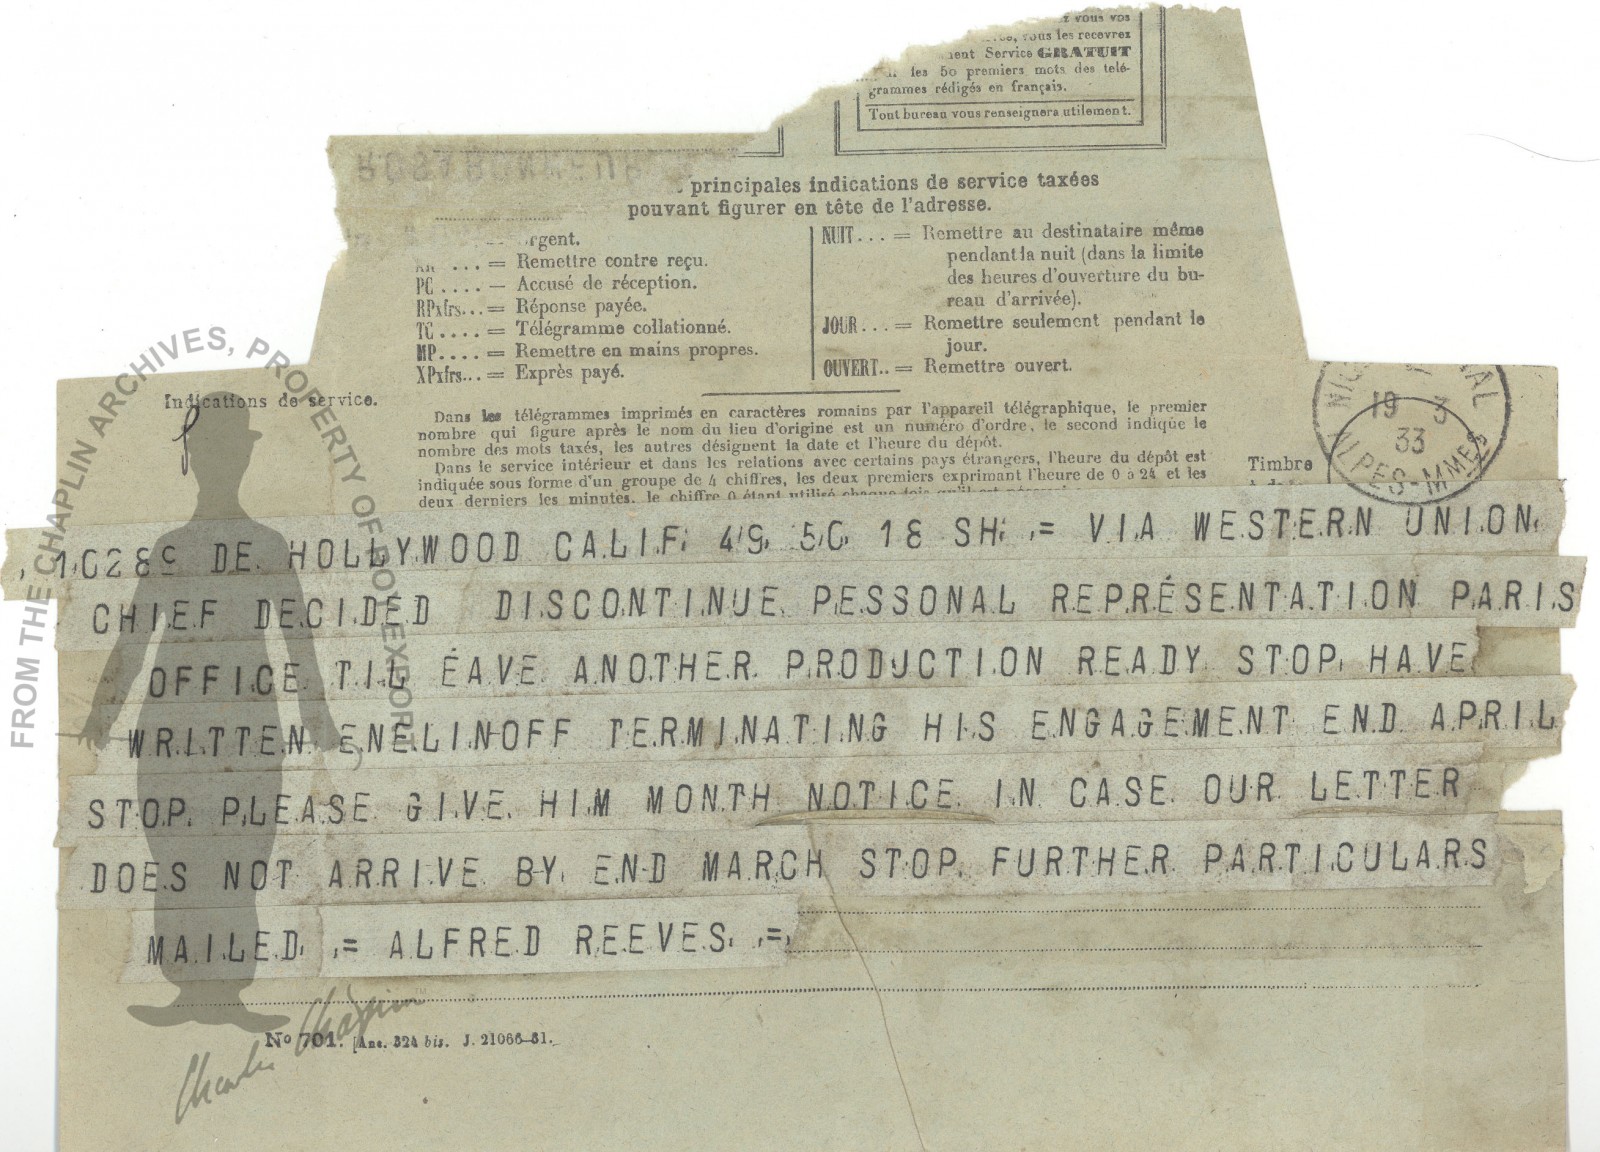 vous vos
vous les recevrez
Service GRATUIT
les 50 premiers mots des télé-
grammes rédigés en français.
Tout bureau vous renseignera utilement.
principales indications de service taxées
pouvant figurer en tête de l'adresse.
= Remettre contre reçu.
PC .... — Accusé de réception.
RPxfrs... = Réponse payée.
TC .... = Télégramme collationné.
MP.... = Remettre en mains propres.
XPxfrs... = Exprès payé.
NUIT... = Remettre au destinataire même
pendant la nuit (dans la limite
des heures d'ouverture du bu-
reau d'arrivée).
JOUR... = Remettre seulement pendant le
jour.
OUVERT.. = Remettre ouvert.
Indications de service.
Dans les télégrammes imprimés en caractères romains par l'appareil télégraphique, le premier
nombre qui figure après le nom du lieu d'origine est un numéro d'ordre, le second indique le
nombre des mots taxés, les autres désignent la date et l'heure du dépôt.
Dans le service intérieur et dans les relations avec certains pays étrangers, l'heure du dépôt est
indiquée sous forme d'un groupe de 4 chiffres, les deux premiers exprimant l'heure de 0 à 24 et les
deux derniers les minutes, le chiffre 0 étant utilisé chaque fois
Timbre
19 3
33
ALPES-MMES
1028c DE HOLLYWOOD CALIF 49 50 18 SH = VIA WESTERN UNION
CHIEF DECIDED DISCONTINUE PESSONAL REPRÉSENTATION PARIS
OFFICE TIL ÉAVE ANOTHER PRODUCTION READY STOP HAVE
WRITTEN ENELINOFF TERMINATING HIS ENGAGEMENT END APRIL
STOP PLEASE GIVE HIM MONTH NOTICE IN CASE OUR LETTER
DOES NOT ARRIVE BY END MARCH STOP FURTHER PARTICULARS
MAILED = ALFRED REEVES =
No 701. [Anc. 324 bis. J. 21066-31.
FROM THE CHAPLIN ARCHIVES, PROPERTY OF ROY EXPORT
Charlie Chaplin